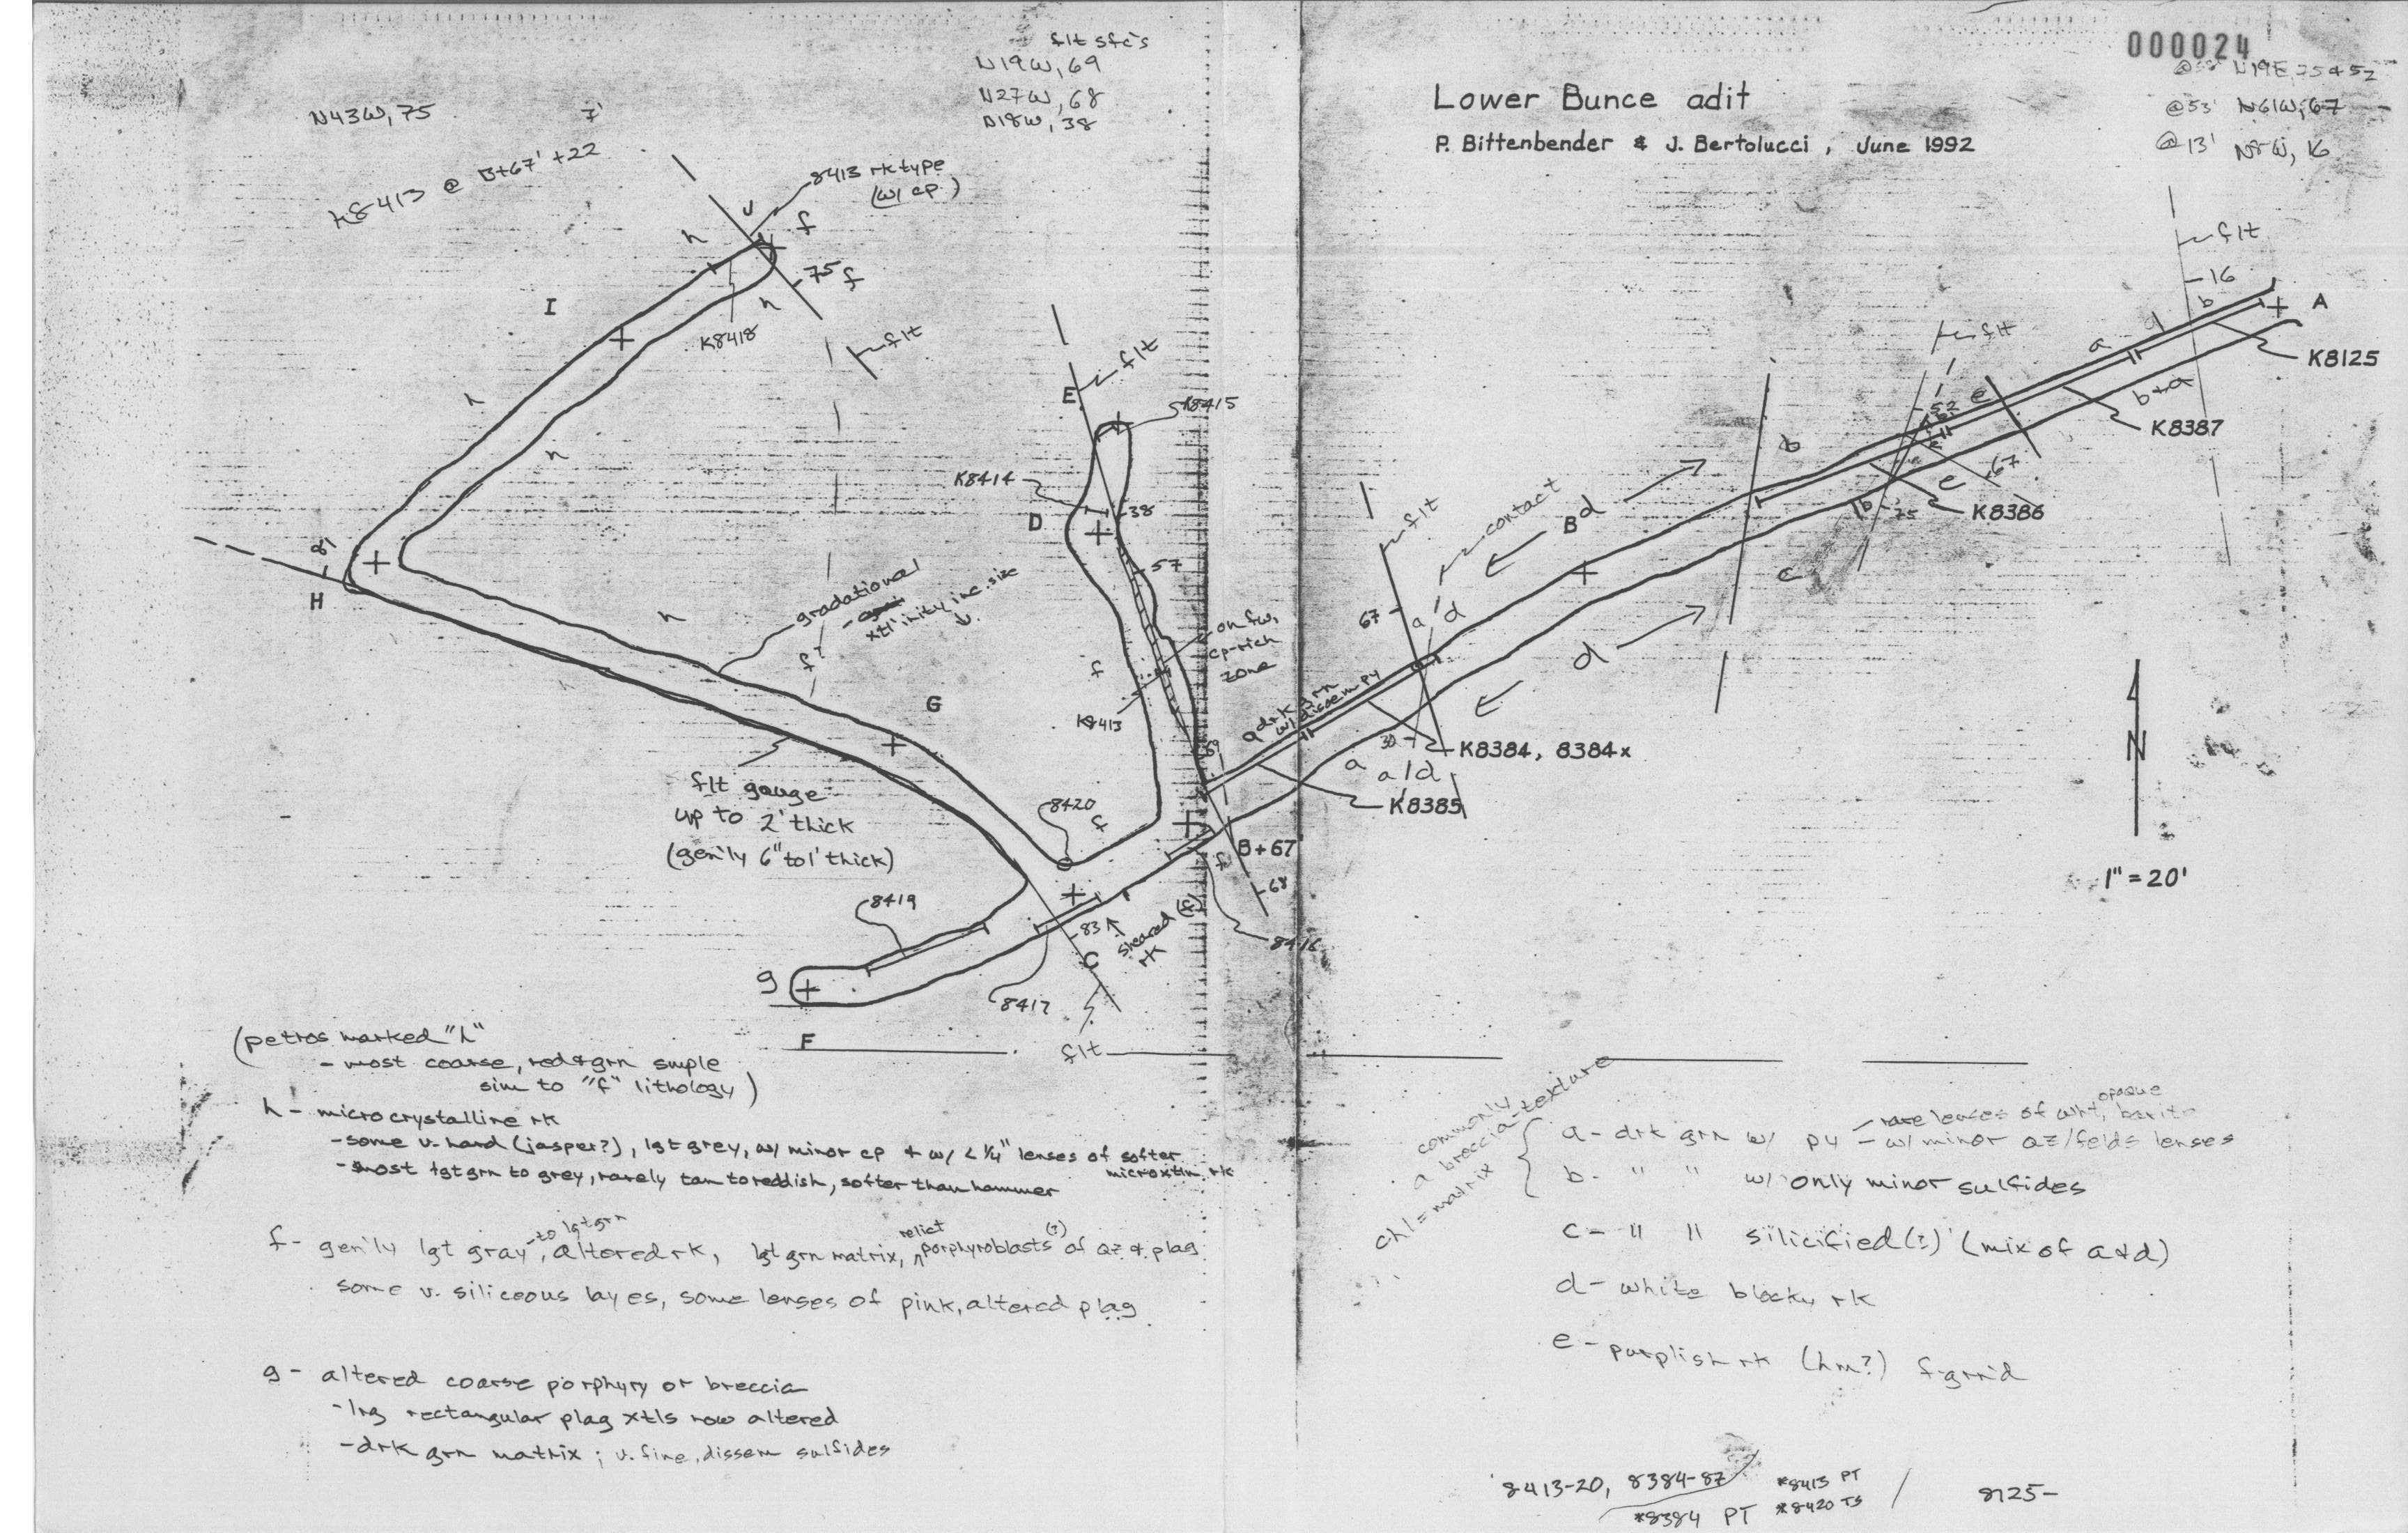 000024
flt sfc's
N19W, 69
N27W, 68
N18W, 38
N43W, 75
7'
K8413 @ B+67' +22
Lower Bunce adit
P. Bittenbender & J. Bertolucci, June 1992
N19E, 75 & 52
@53' N61W, 67
@13' N8W, 16
8413 rk type
(w/ cp)
J
f
h
75
f
h
K8418
I
flt
h
h
E
flt
K8415
K8414
D
38
57
on fw,
cp-rich
zone
f
K8413
69
81
H
h
gradational
xtl'inity inc. size
f?
G
flt gouge
up to 2' thick
(gen'ly 6" to 1' thick)
8420
f
8419
g
F
8417
83
C
sheared (f)
rk
flt
8416
f
B+67
68
drk grn
w/ dissem py
K8385
K8384, 8384x
a
a/d
30
67
flt
contact
a
d
B
d
d
b
c
flt
52
b
e
67
e
b
75
K8386
K8387
a
d
b
b+a
flt
16
A
K8125
N
1" = 20'
(petros marked "h"
- most coarse, red & grn smple
sim to "f" lithology)
h - microcrystalline rk
- some v. hard (jasper?), lgt grey, w/ minor cp & w/ < 1/4" lenses of softer
microxtln rk
- most lgt grn to grey, rarely tan to reddish, softer than hammer
f - gen'ly lgt gray to lgt grn, altered rk, lgt grn matrix, relict porphyroblasts (?) of qz & plag
some v. siliceous layes, some lenses of pink, altered plag
g - altered coarse porphyry or breccia
- lrg rectangular plag xtls now altered
- drk grn matrix; v. fine, dissem sulfides
commonly
a breccia texture
chl = matrix
a - drk grn w/ py - rare lenses of wht, opaque barite
- w/ minor qz/felds lenses
b - " " w/ only minor sulfides
c - " " silicified (?) (mix of a & d)
d - white blocky rk
e - purplish rk (hm?) f-grn'd
8413-20, 8384-87
*8413 PT
*8384 PT *8420 TS
/ 8125-